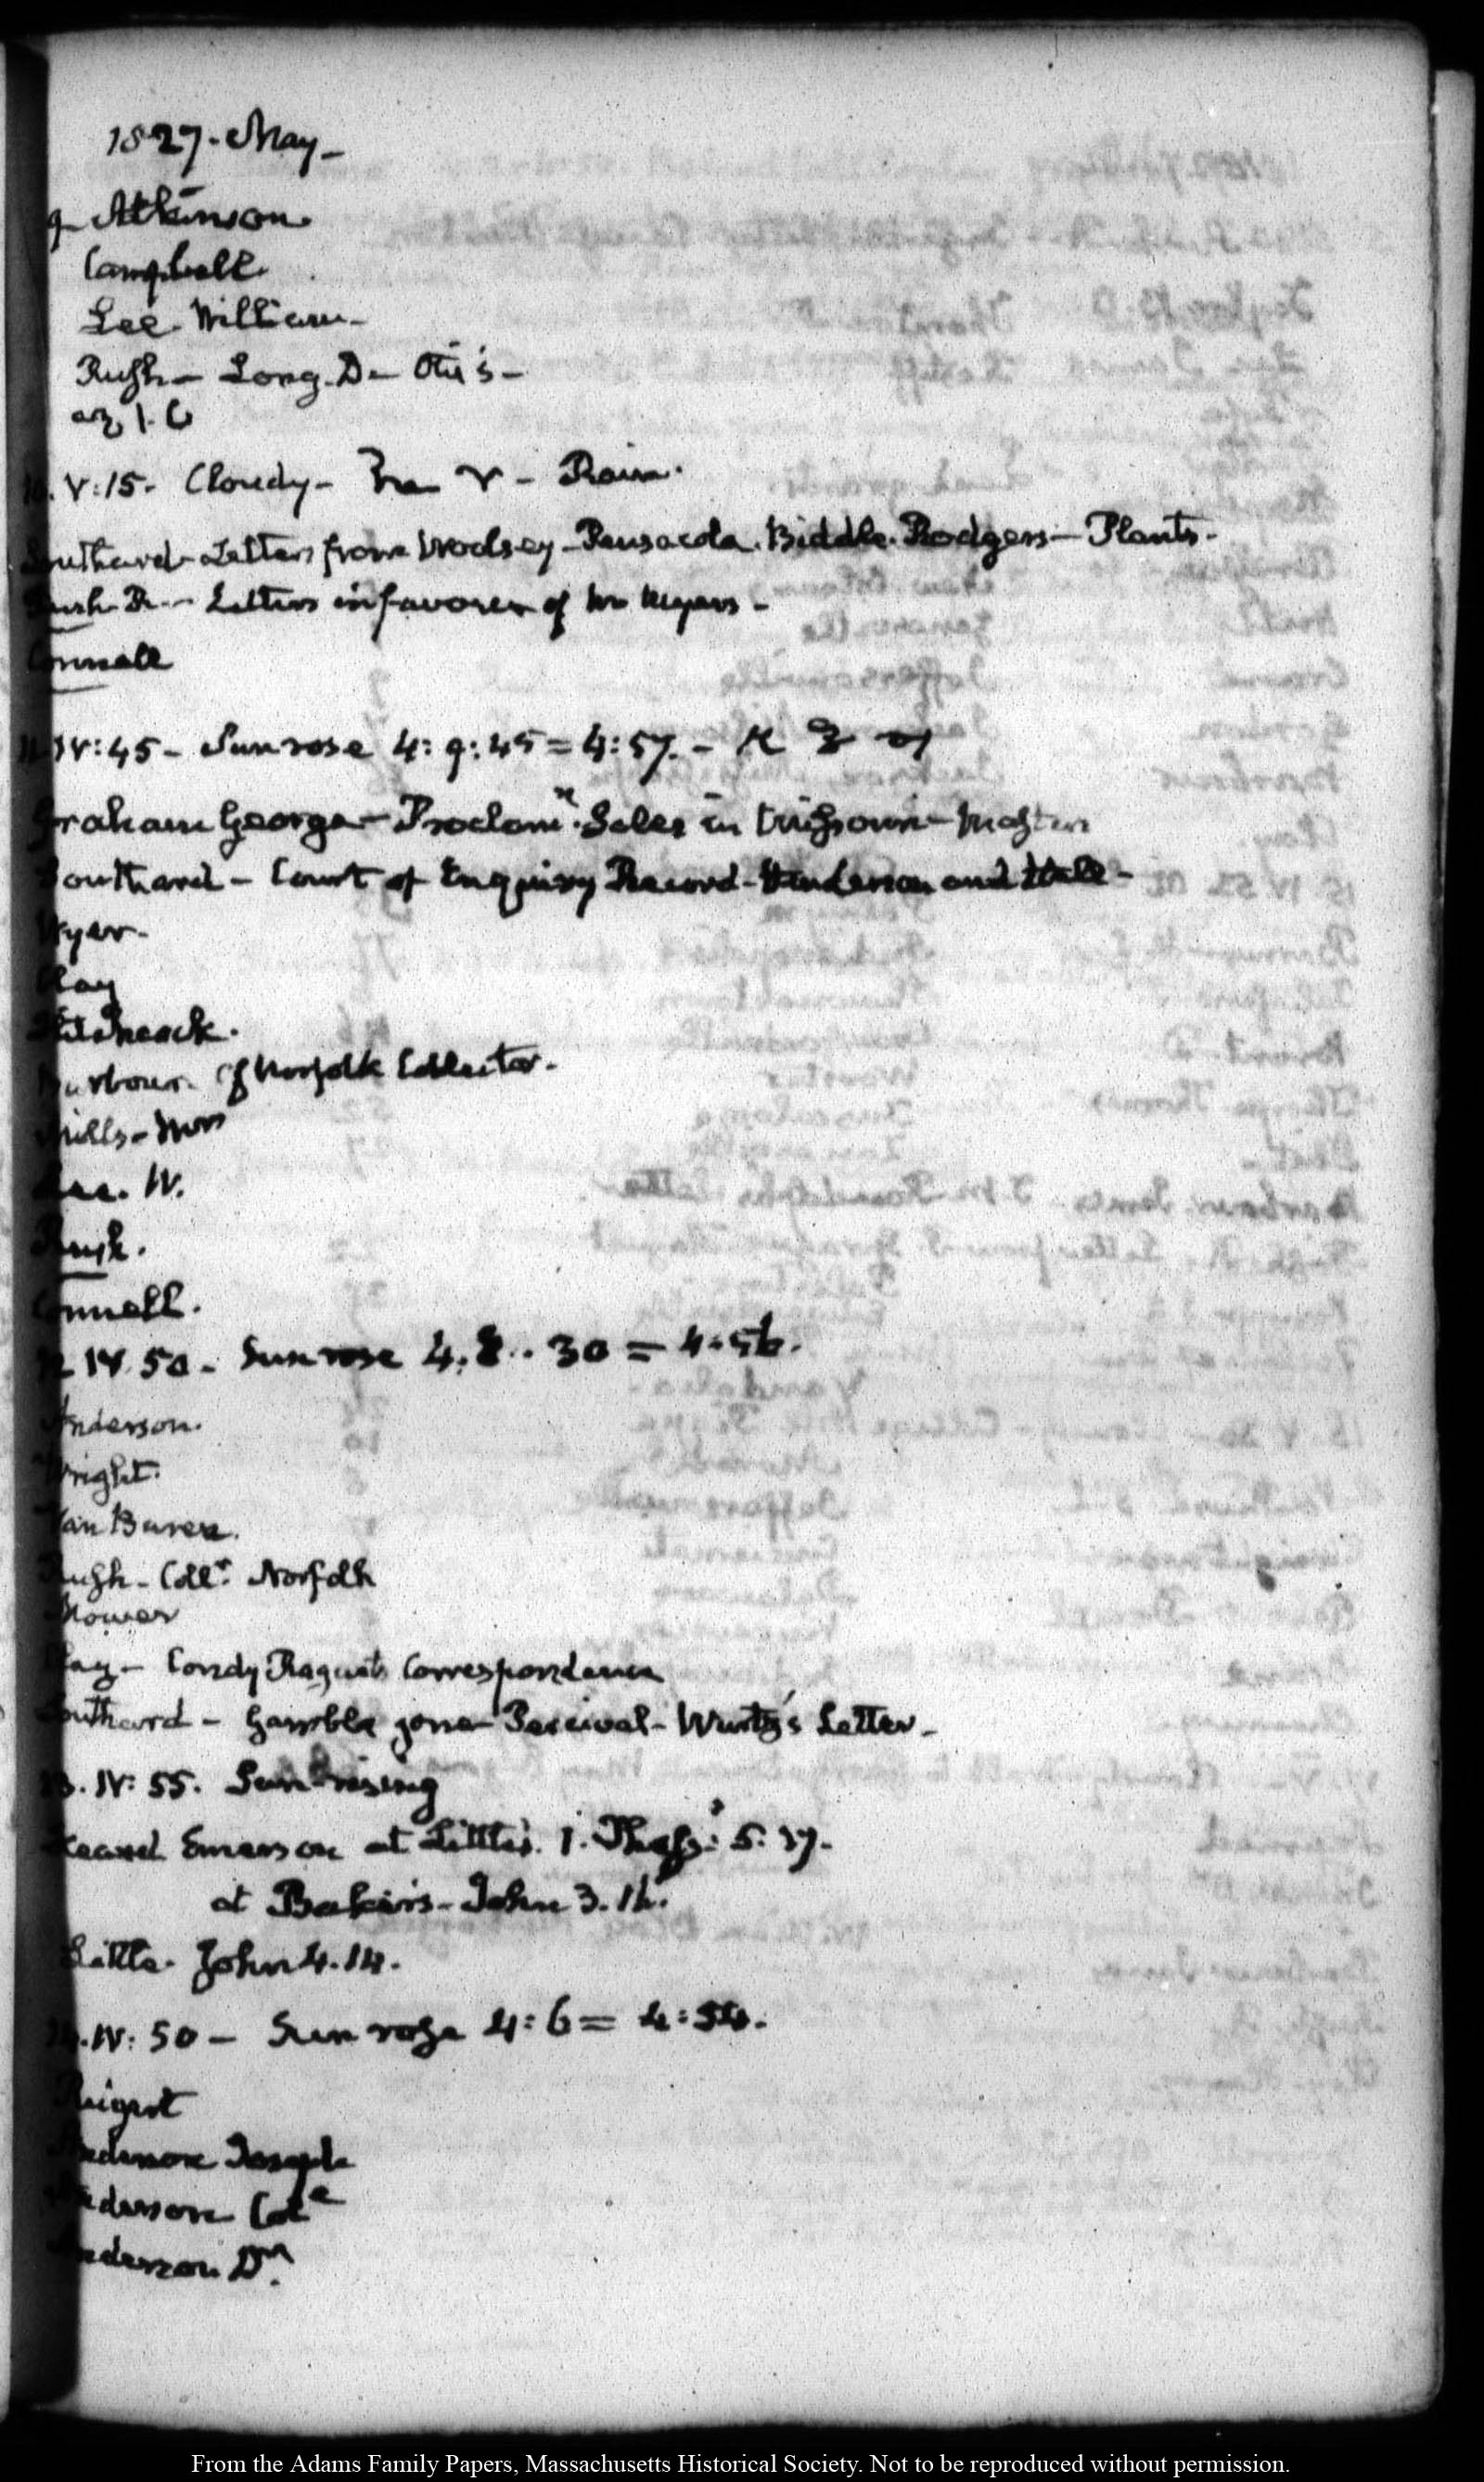 1827. May_
9 Atkinson.
Campbell.
Lee. William_
Rush_ Long. D_ Otis's_
10. V:15. Cloudy_ V_ Rain.
Southard_Letters from Woolsey_Pensacola. Biddle. Rodgers_ Plants.
Rush R._ Letters in favour of Mr Myers_
Connell
11. IV:45_ Sun rose 4:9:45 = 4:57._
Graham George_ Proclamn. Sales in
Southard_ Court of Enquiry Record_Henderson and Hall_
Wyer_
Clay
Hitchcock.
Barbour. Norfolk Collector.
Mills_ Mrs
Lee. W.
Rush.
Connell.
12 IV. 50_ Sun rose 4.8..30 = 4:56.
Anderson.
Wright.
Van Buren.
Rush_ Collr. Norfolk
Mower
Clay_ Condy Raguet's Correspondence
Southard_ Gamble gone_Percival_Wurtz's Letter_
13. IV: 55. Sun rising
Heard Emerson at Little's. 1. Thess: 5. 17.
at Baker's_ John 3. 16.
Little. John 4. 14.
14. IV: 50_ Sun rose 4:6 = 4:54.
Reigart
Anderson Joseph
Anderson
Anderson Dr.
From the Adams Family Papers, Massachusetts Historical Society. Not to be reproduced without permission.